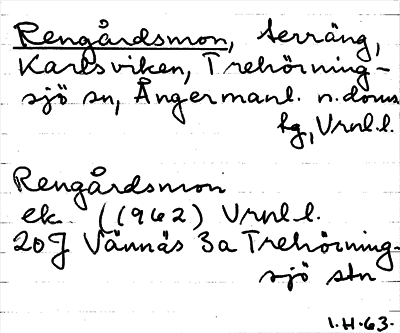 Rengårdsmon, terräng,
Karlsviken, Trehörning-
sjö sn, Ångermanl. n. doms
hg, Vrnl.l.
Rengårdsmon
ek ((962) Vrnl.l.
20J Vännäs 3a Trehörning-
sjö stn
I.H.63.